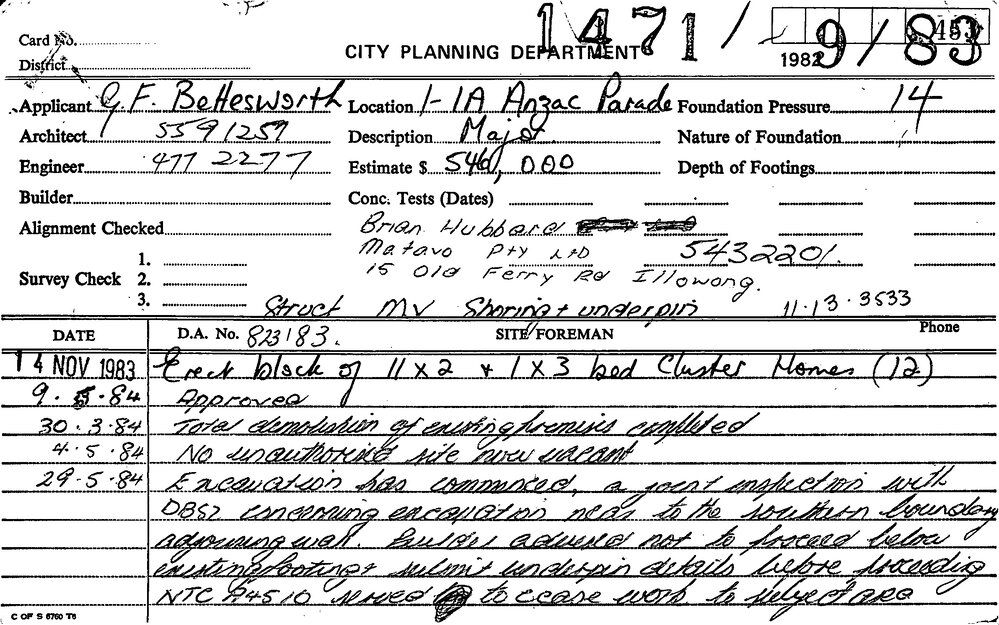 1471/ 9/83
453
Card No.
CITY PLANNING DEPARTMENT
1982
District
Applicant G.F. Bettesworth Location 1-1A Anzac Parade Foundation Pressure 14
Architect 5591257 Description Major Nature of Foundation
Engineer 477 2277 Estimate $ 540,000 Depth of Footings
Builder Conc. Tests (Dates)
Alignment Checked Brian Hubbard
Matavo Pty Ltd 5432201.
1.
15 Old Ferry Rd Illowong.
Survey Check 2.
3.
Struct MV Shoring + underpin 11.13.3533
DATE D.A. No. 823183. SITE FOREMAN Phone
14 NOV 1983 Erect block of 11 x 2 + 1 x 3 bed Cluster Homes (12)
9. 5.84 Approved
30.3.84 Total demolition of existing premises completed
4.5.84 No unauthorised site now vacant
29.5.84 Excavation has commenced, a joint inspection with
DBS2 concerning excavation near to the southern boundary
adjoining wall. Builder advised not to proceed below
existing footings + submit underpin details before proceeding
NTC P4510 served to cease work to subject area
C OF S 6760 T6